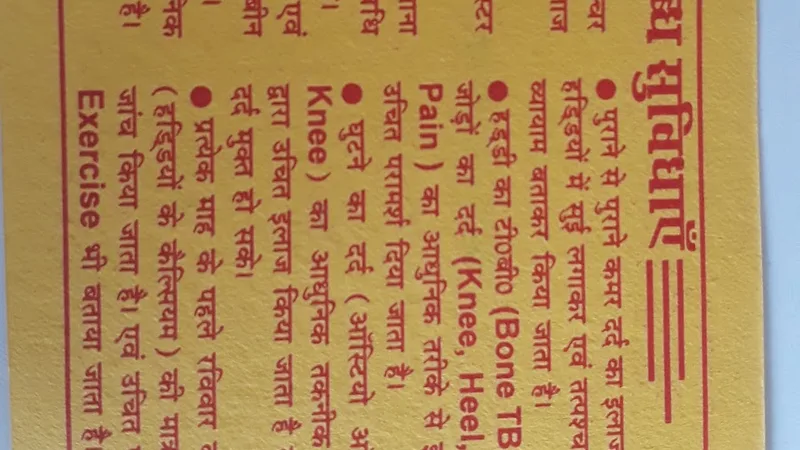 सुविधाएँ
थर
● पुराने से पुराने कमर दर्द का इलाज
ाज
हड्डियों में सुई लगाकर एवं तत्पश्च
व्यायाम बताकर किया जाता है।
स्टर
● हड्डी का टी०बी० (Bone TB
ाना
जोड़ों का दर्द (Knee, Heel,
Pain ) का आधुनिक तरीके से इ
उचित परामर्श दिया जाता है।
● घुटने का दर्द ( ऑस्टियो ओ
एवं
Knee ) का आधुनिक तकनीक
द्वारा उचित इलाज किया जाता है
दर्द मुक्त हो सके।
● प्रत्येक माह के पहले रविवार
( हड्डियों के कैल्सियम ) की मात्र
है।
जांच किया जाता है। एवं उचित
Exercise भी बताया जाता है।